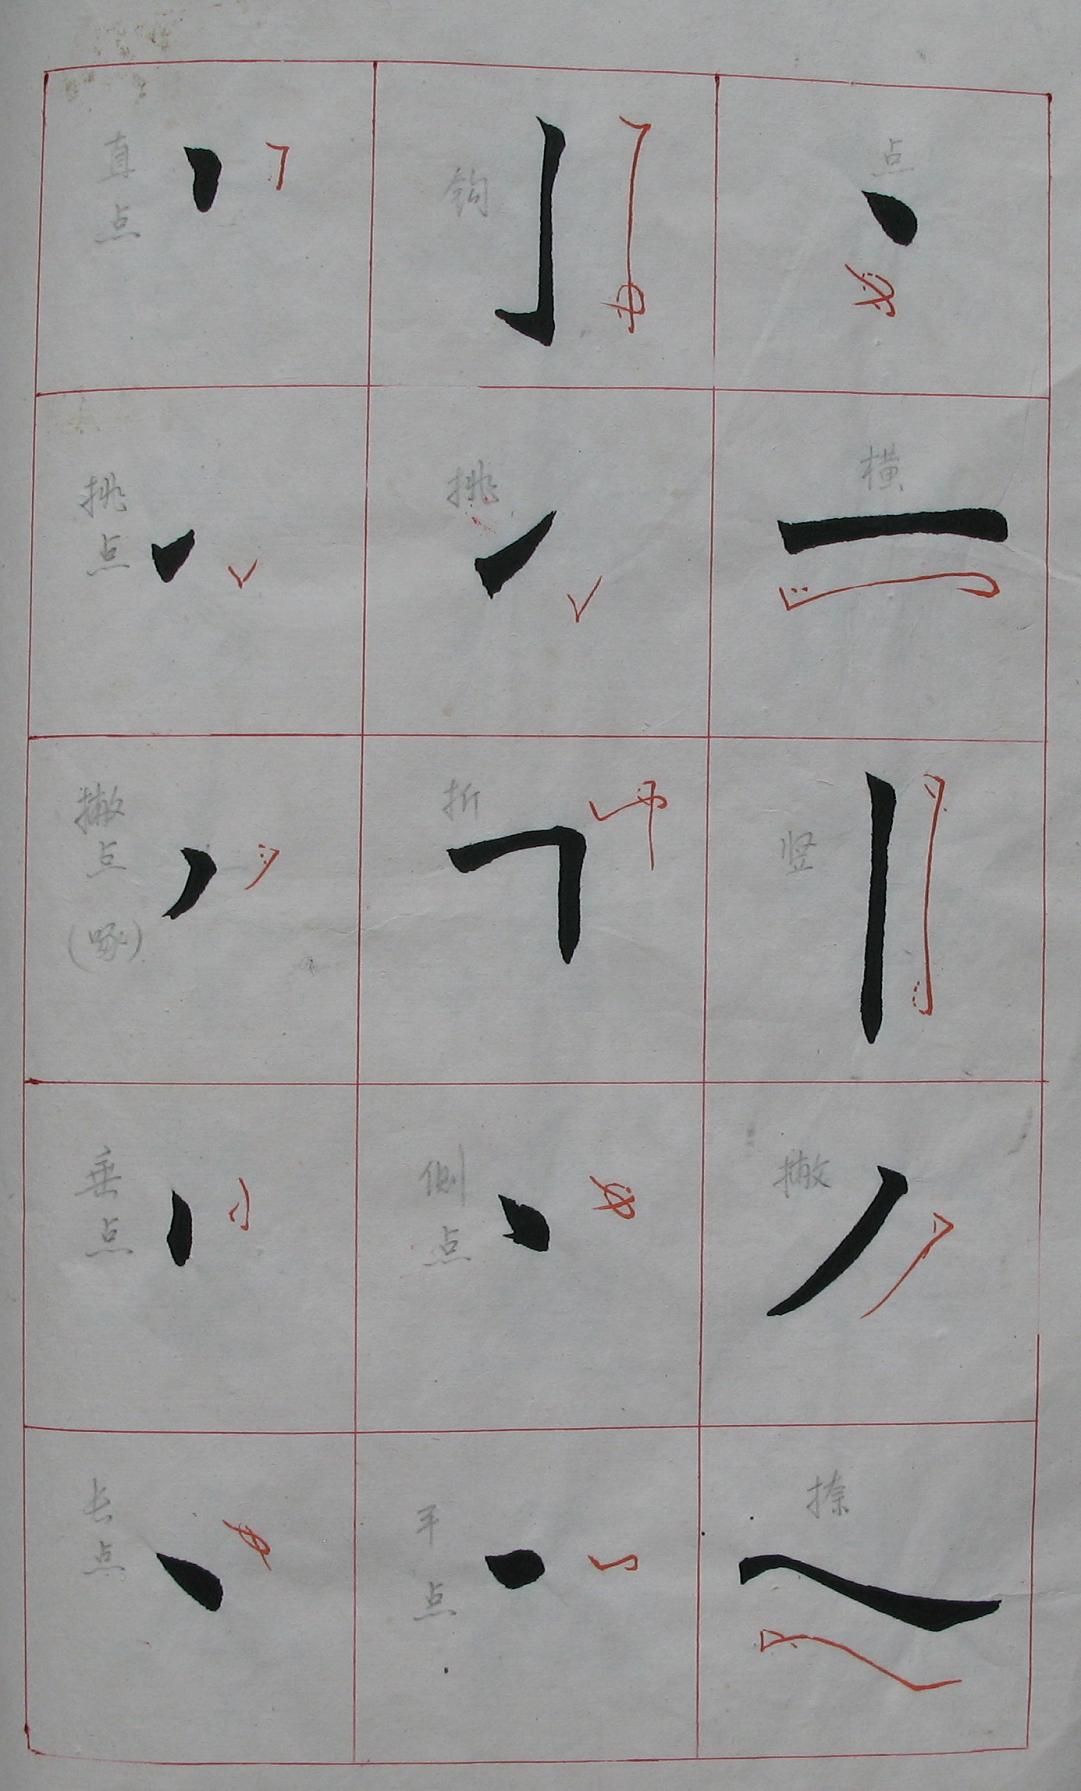 点
横
竖
撇
捺
钩
挑
折
侧点
平点
直点
挑点
撇点
(啄)
垂点
长点